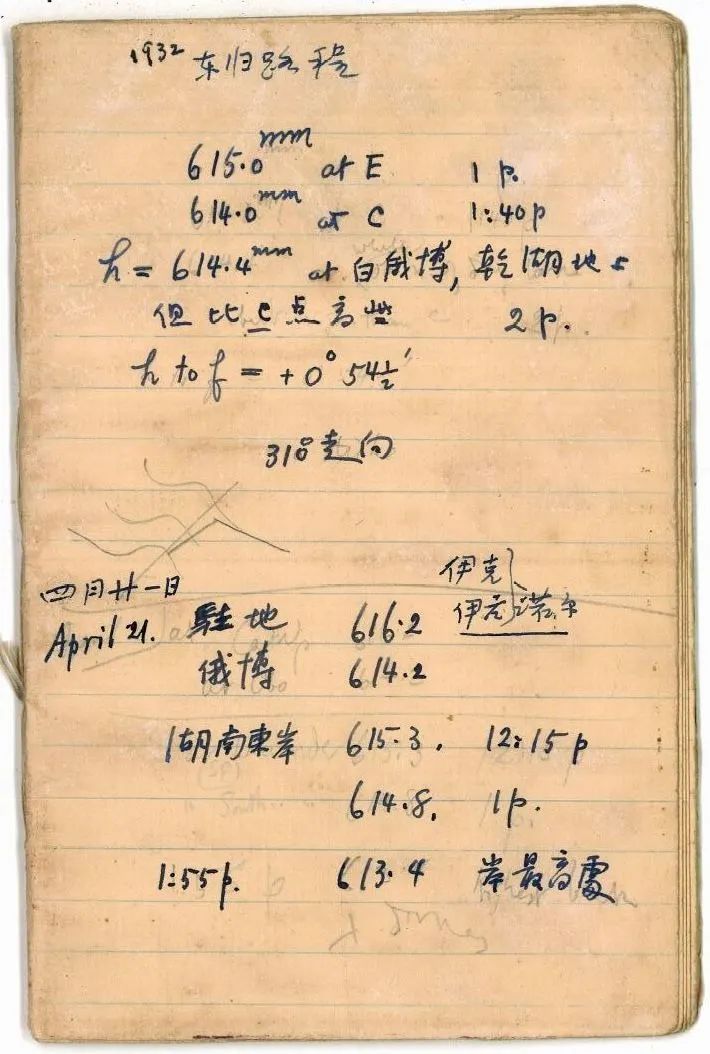 1932 东归路程
615.0mm at E 1 p.
614.0mm at C 1:40 p
h = 614.4mm at 白俄博, 乾湖地
但比 C 点高些 2 p.
h to f = +0° 54½'
318° 走向
四月廿一日
April 21.
伊克
伊克 诺尔
駐地 616.2
俄博 614.2
湖南東岸 615.3. 12:15 p
614.8. 1 p.
1:55 p. 613.4 岸最高處